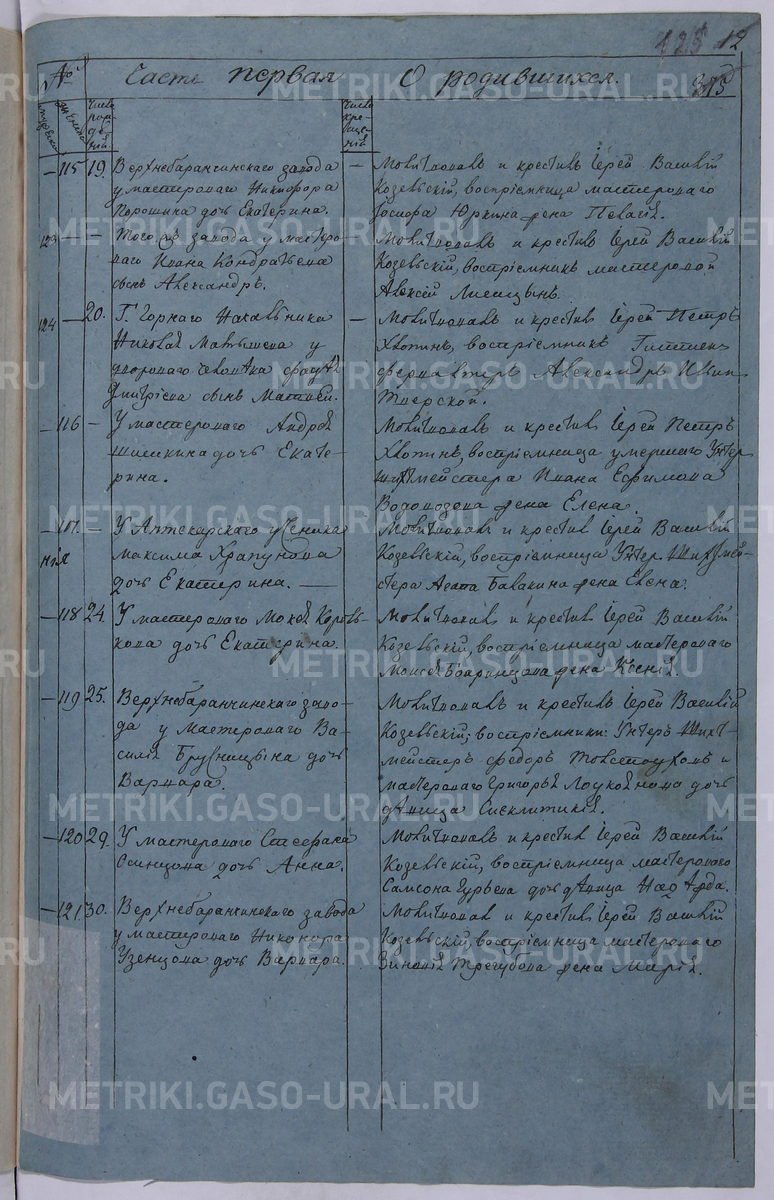 125 12
№ Часть первая О родившихся. 315
мужеска женска Число рождений Число крещений
115 19. Верхнебаранчинскаго завода
у мастероваго Никифора
Порошина дочь Екатерина.
— Молитвовалъ и крестилъ Іерей Василій
Козельскій, воспріемница мастероваго
Іосифа Юркина жена Пелагія.
123 — — Того жъ завода у мастеро-
ваго Ивана Кондратьева
сынъ Александръ.
Молитвовалъ и крестилъ Іерей Василій
Козельскій, воспріемникъ мастеровой
Алексій Лисицынъ.
124 — 20. Г. Горнаго Начальника
Николая у
двороваго человѣка
Дмитріева сынъ Матвей.
— Молитвовалъ и крестилъ Іерей Петръ
Хлотинъ, воспріемникъ Гиттен-
ферватеръ Александръ
— 116 — У мастероваго Андрея
Шишкина дочь Екате-
рина.
Молитвовалъ и крестилъ Іерей Петръ
Хлотинъ, воспріемница умершаго Унтер
шихтмейстера Ивана Ефимова
Водолазова жена Елена.
— — У Аптекарскаго ученика
нія Максима Храпунова
дочь Екатерина. —
Молитвовалъ и крестил Іерей Василій
Козельскій, воспріемница Унтер Шихтмей-
стера жена Елена.
— 118 24. У мастероваго Мокея Король-
кова дочь Екатерина
Молитвовалъ и крестил Іерей Василій
Козельскій, воспріемница мастероваго
Моисея Бояринцова жена Ксенія.
— 119 25. Верхнебаранчинскаго заво-
да у Мастероваго Ва-
силія Брусницына дочь
Варвара.
Молитвовалъ и крестилъ Іерей Василій
Козельскій; воспріемники: Унтеръ Шихт-
мейстеръ Федоръ Толстоуховъ и
мастероваго Григорья дочь
дѣвица Сиклитикія.
— 120 29. У мастероваго Стефана
Осинцова дочь Анна.
Молитвовалъ и крестил Іерей Василій
Козельскій, воспріемница мастероваго
Самсона Гурьева дочь дѣвица
— 121 30. Верхнебаранчинскаго завода
у мастероваго Никонора
Узенцова дочь Варвара.
Молитвовал и крестил Іерей Василій
Козельскій, воспріемница мастероваго
Зиновія Трегубова жена Марія.
METRIKI.GASO-URAL.RU